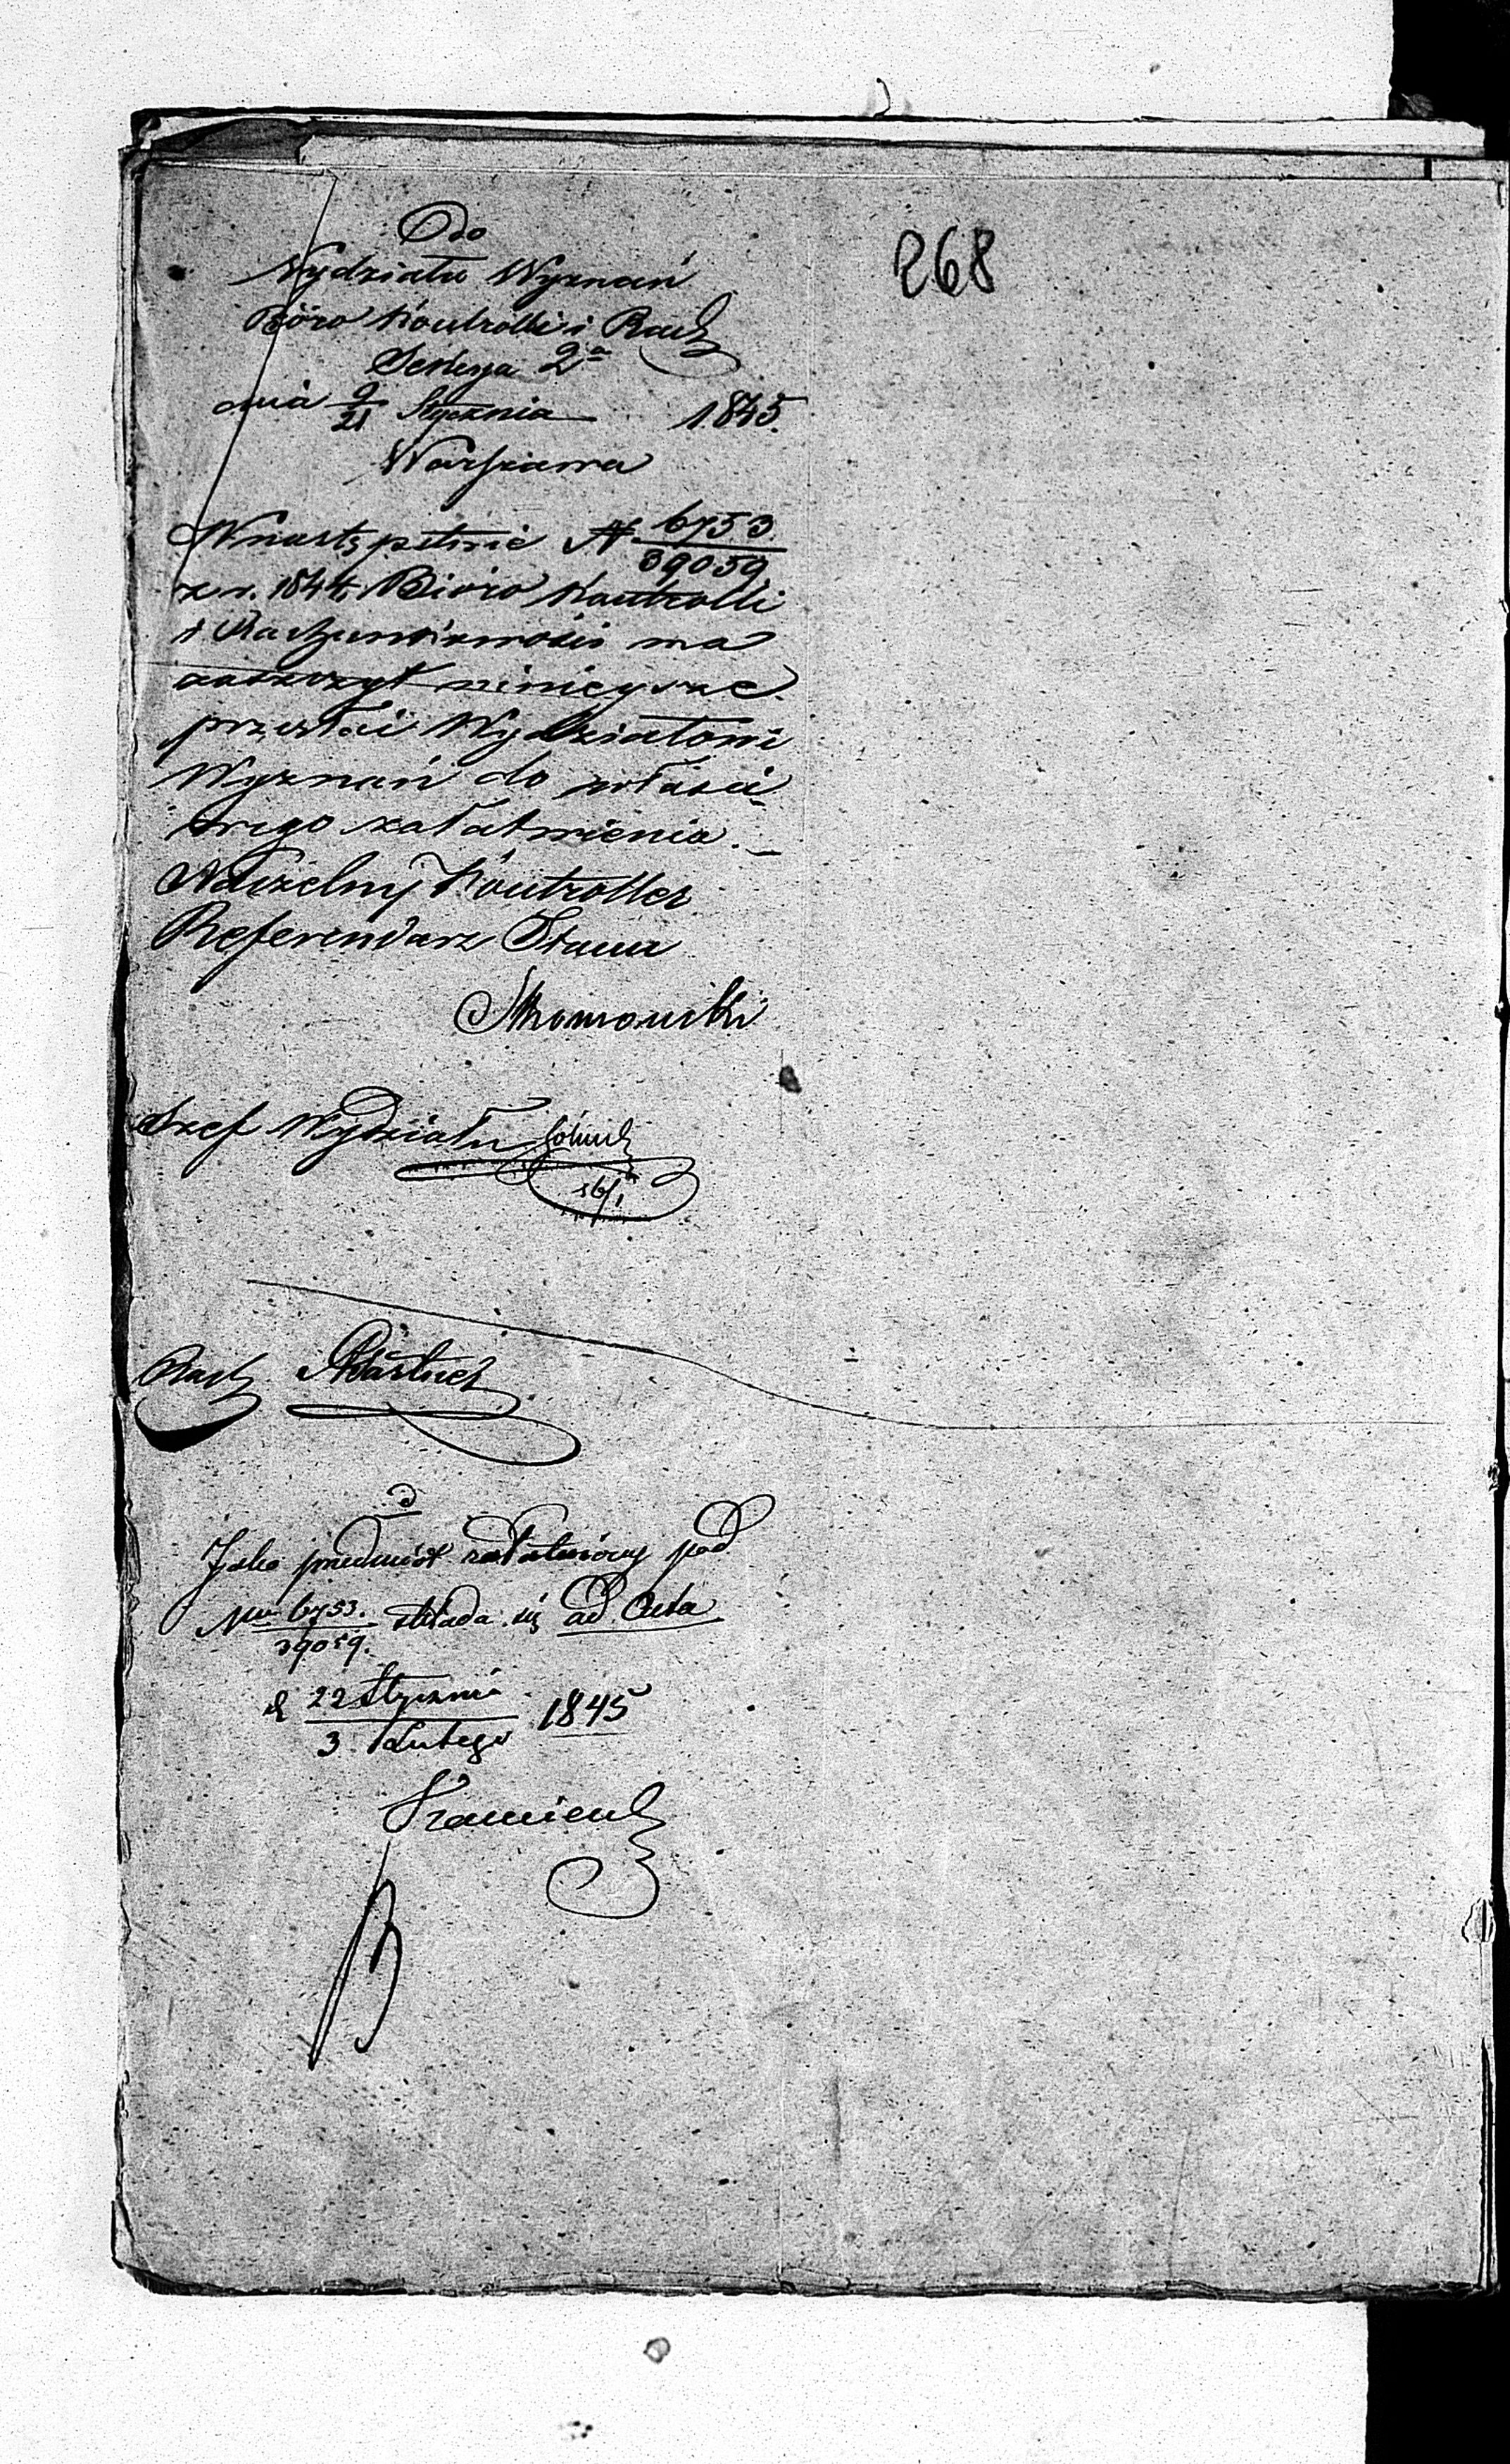 Do
Wydziału Wyznań
Bióro Kontrolli i Rach
Sekcya 2a
dnia 9/21 Stycznia 1845.
Warszawa
268
W następstwie N 6753/39059
z r. 1844. Bióro Kontrolli
i Rachunkowości ma
zaszczyt niniejsze
przesłać Wydziałowi
Wyznań do właści-
wego załatwienia. —
Naczelny Kontroller
Referendarz Stanu
Szef Wydziału
Rach
Jako przedmiot załatwiony pod
Nrm 6753./39059. składa się ad Acta
d 22 Stycznia/3 Lutego 1845